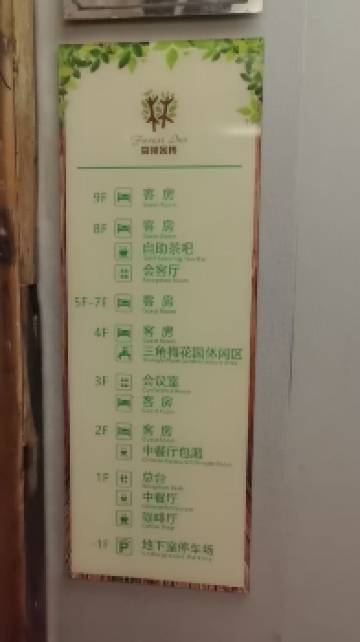 Forest Inn
9F 客房
Guest Room
8F 客房
Guest Room
自助茶吧
会客厅
Reception Room
5F-7F 客房
Guest Room
4F 客房
Guest Room
三角梅花园休闲区
3F 会议室
Conference Room
客房
Guest Room
2F 客房
Guest Room
中餐厅包厢
1F 总台
Reception Desk
中餐厅
Chinese Restaurant
咖啡厅
Coffee Shop
-1F P 地下室停车场